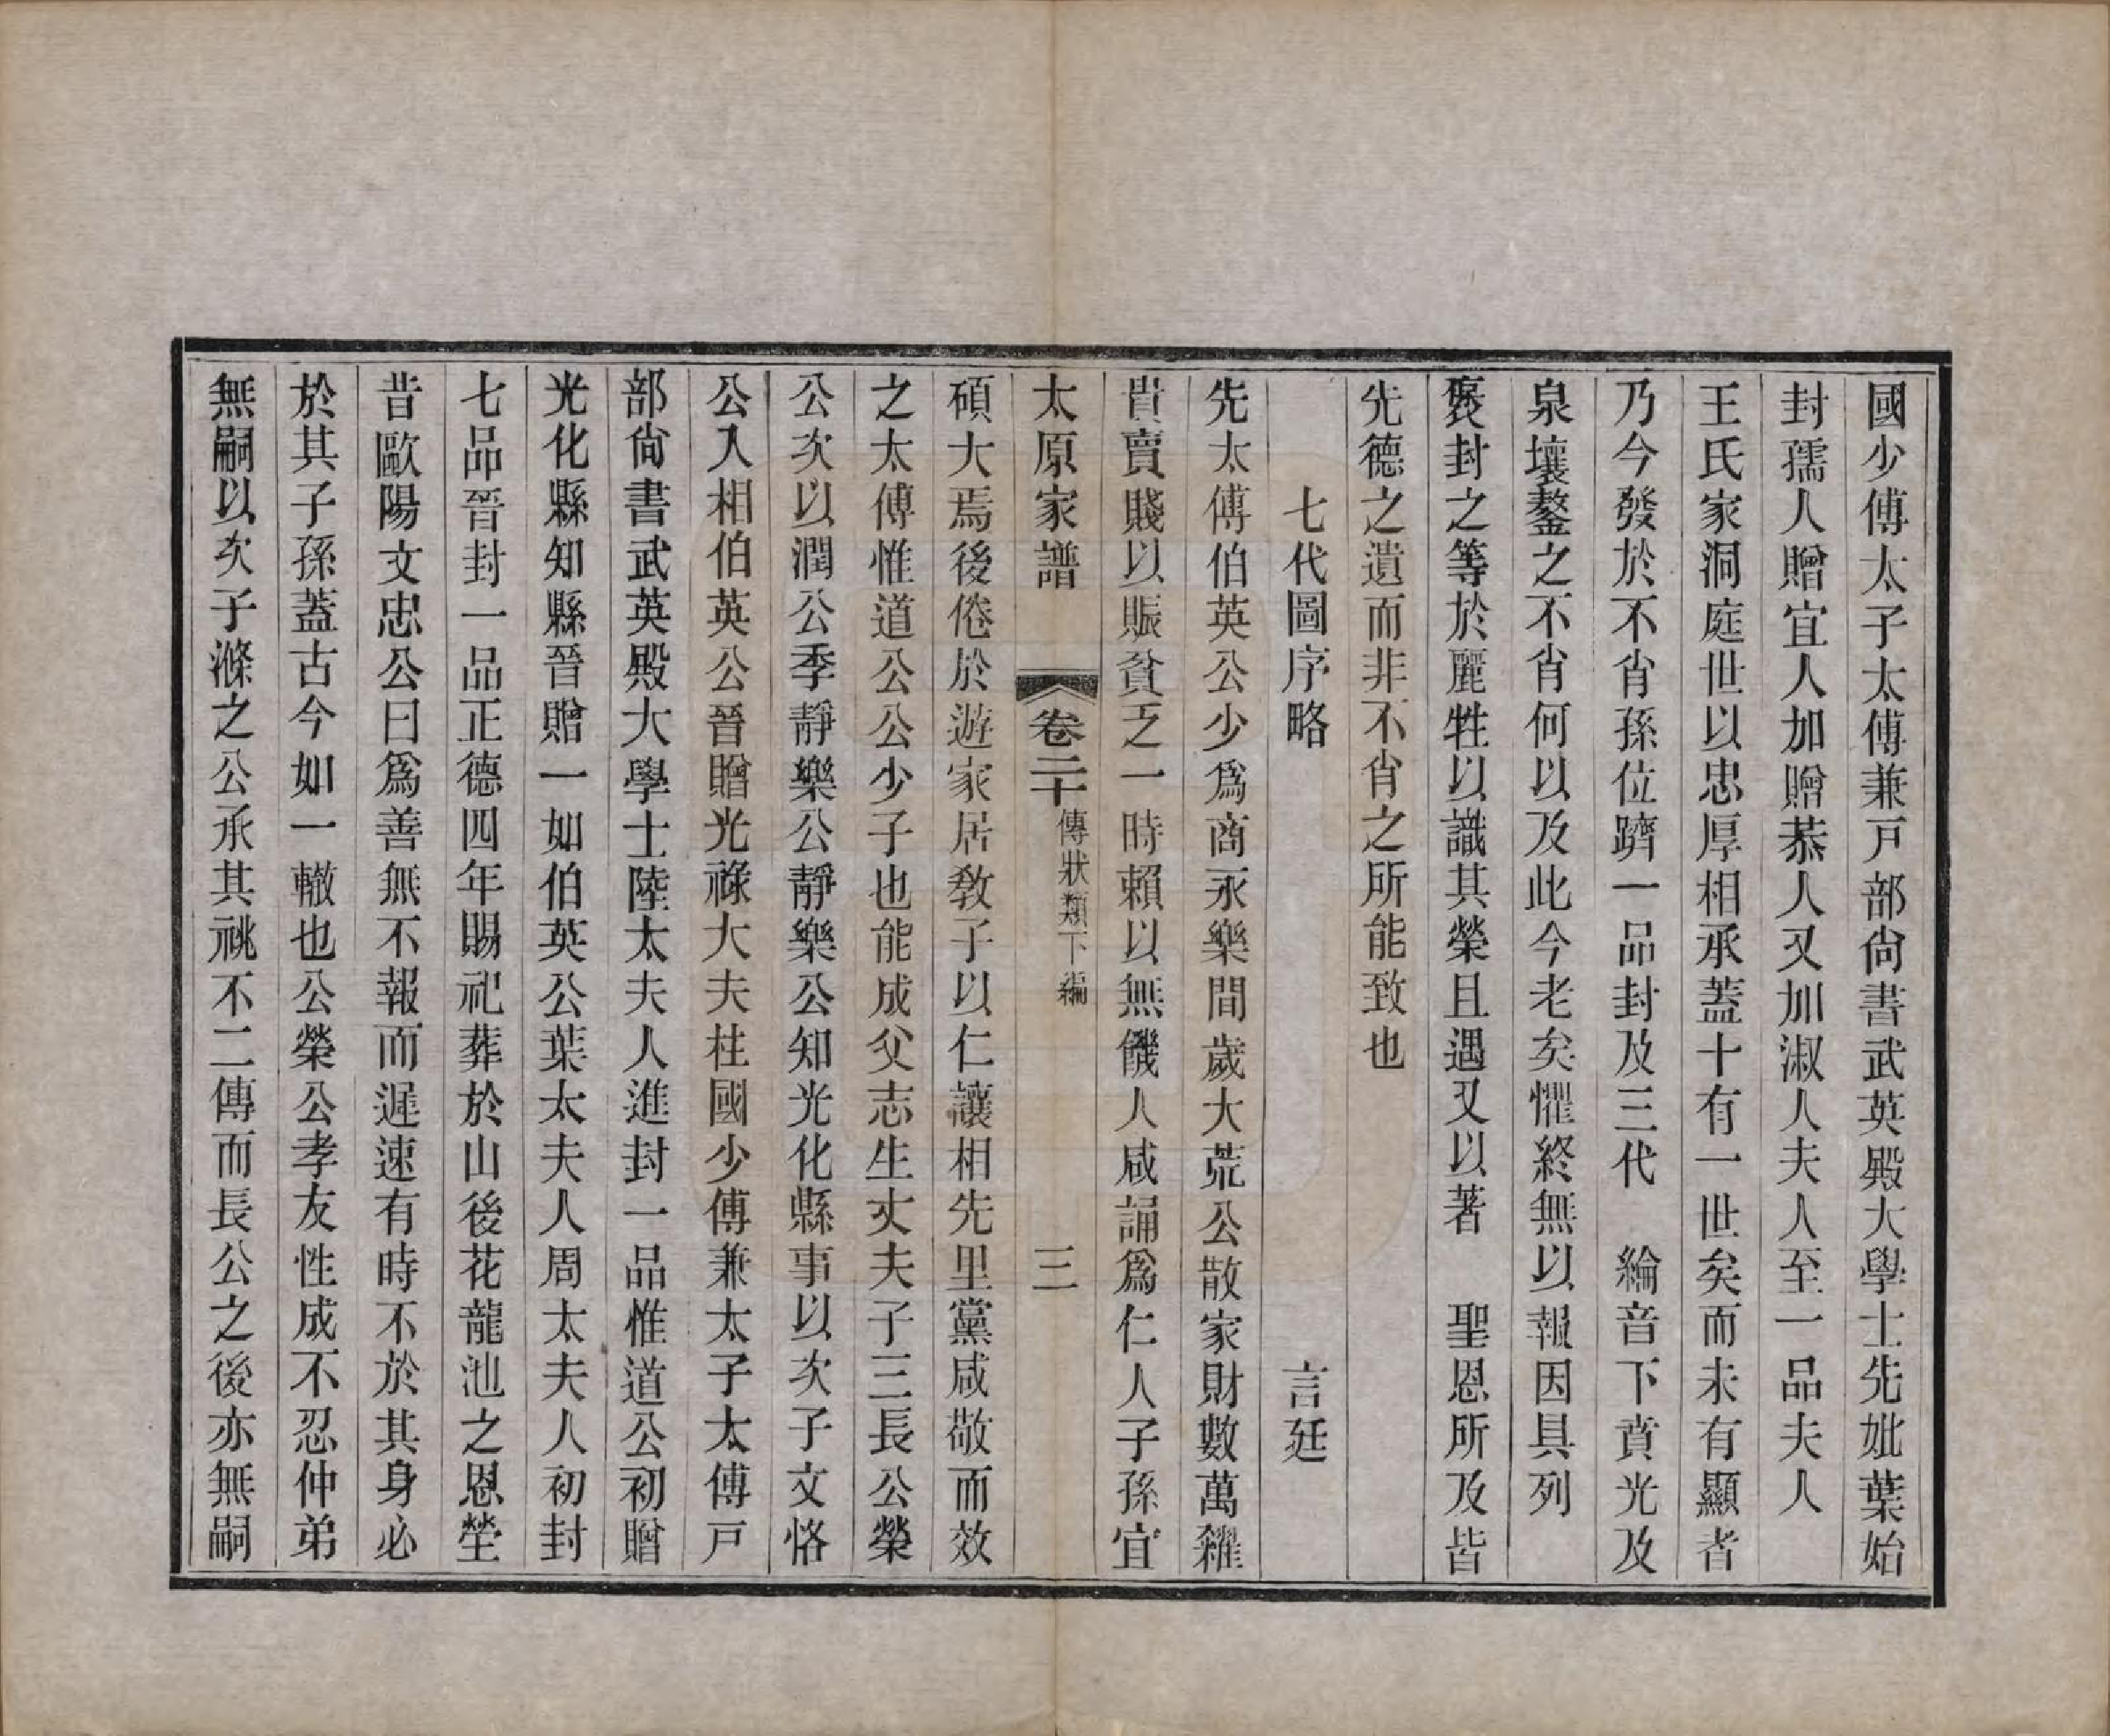 國少傅太子太傅兼戸部尙書武英殿大學士先妣葉始
封孺人贈宜人加贈恭人又加淑人夫人至一品夫人
王氏家洞庭世以忠厚相承蓋十有一世矣而未有顯者
乃今發於不肖孫位躋一品封及三代　綸音下賁光及
泉壤鏊之不肖何以及此今老矣懼終無以報因具列
褒封之等於麗牲以識其榮且遇又以著　聖恩所及皆
先德之遺而非不肖之所能致也
七代圖序略　言廷
先太傅伯英公少爲商永樂間歲大荒公散家財數萬糴
貴賣賤以賑貧乏一時賴以無饑人咸誦爲仁人子孫宜
太原家譜　卷二十　傳狀類下編　三
碩大焉後倦於遊家居敎子以仁讓相先里黨咸敬而效
之太傅惟道公公少子也能成父志生丈夫子三長公榮
公次以潤公季靜樂公靜樂公知光化縣事以次子文恪
公入相伯英公晉贈光祿大夫柱國少傅兼太子太傅戸
部尙書武英殿大學士陸太夫人進封一品惟道公初贈
光化縣知縣晉贈一如伯英公葉太夫人周太夫人初封
七品晉封一品正德四年賜祀葬於山後花龍池之恩塋
昔歐陽文忠公曰爲善無不報而遲速有時不於其身必
於其子孫蓋古今如一轍也公榮公孝友性成不忍仲弟
無嗣以次子滌之公承其祧不二傳而長公之後亦無嗣